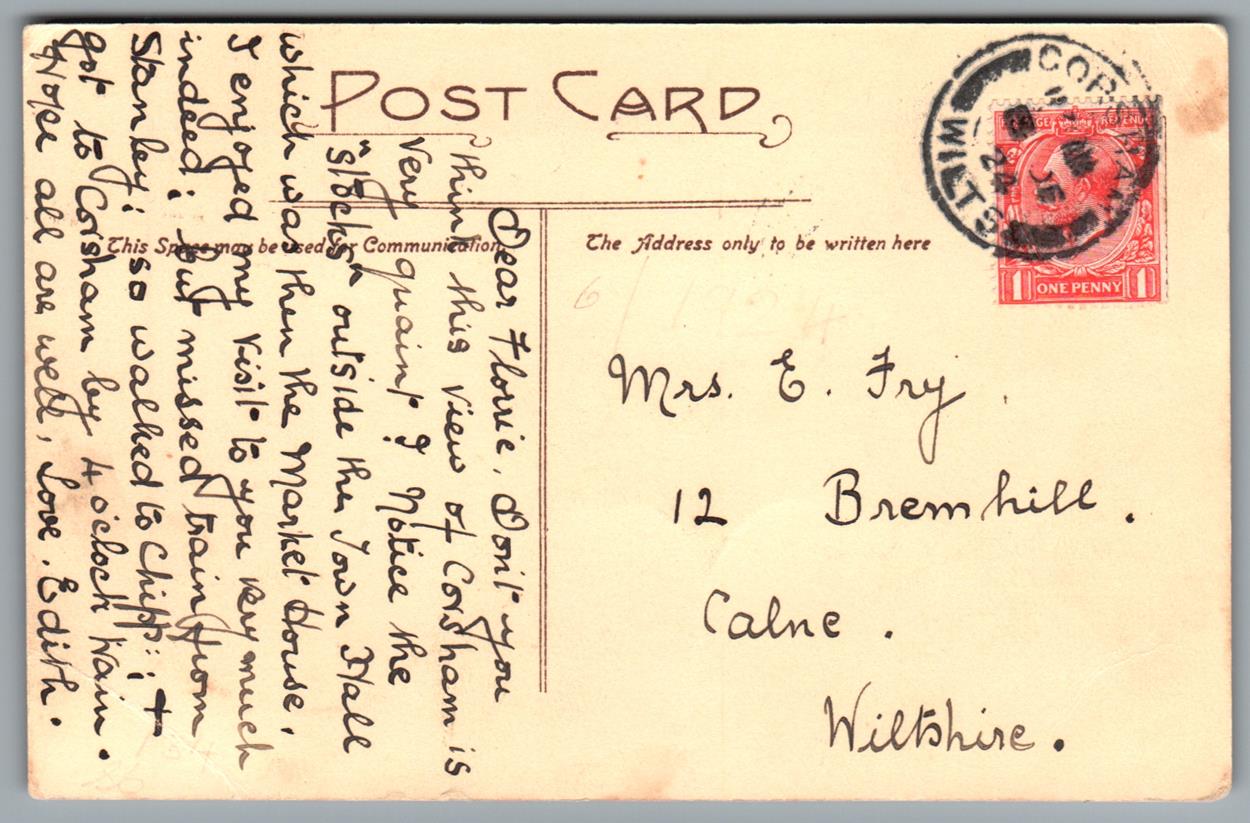 POST CARD
This Space may be used for Communication
The Address only to be written here
Dear Florrie, Don't you
think this view of Corsham is
very quaint? Notice the
"Stocks" outside the Town Hall
which was then the Market House.
I enjoyed my visit to you very much
indeed; but missed train from
Stanley; so walked to Chipp:; +
got to Corsham by 4 o'clock train.
Hope all are well, Love. Edith.
Mrs. E. Fry
12 Bremhill.
Calne.
Wiltshire.
WILTS
JE
24
POSTAGE REVENUE
1 ONE PENNY 1